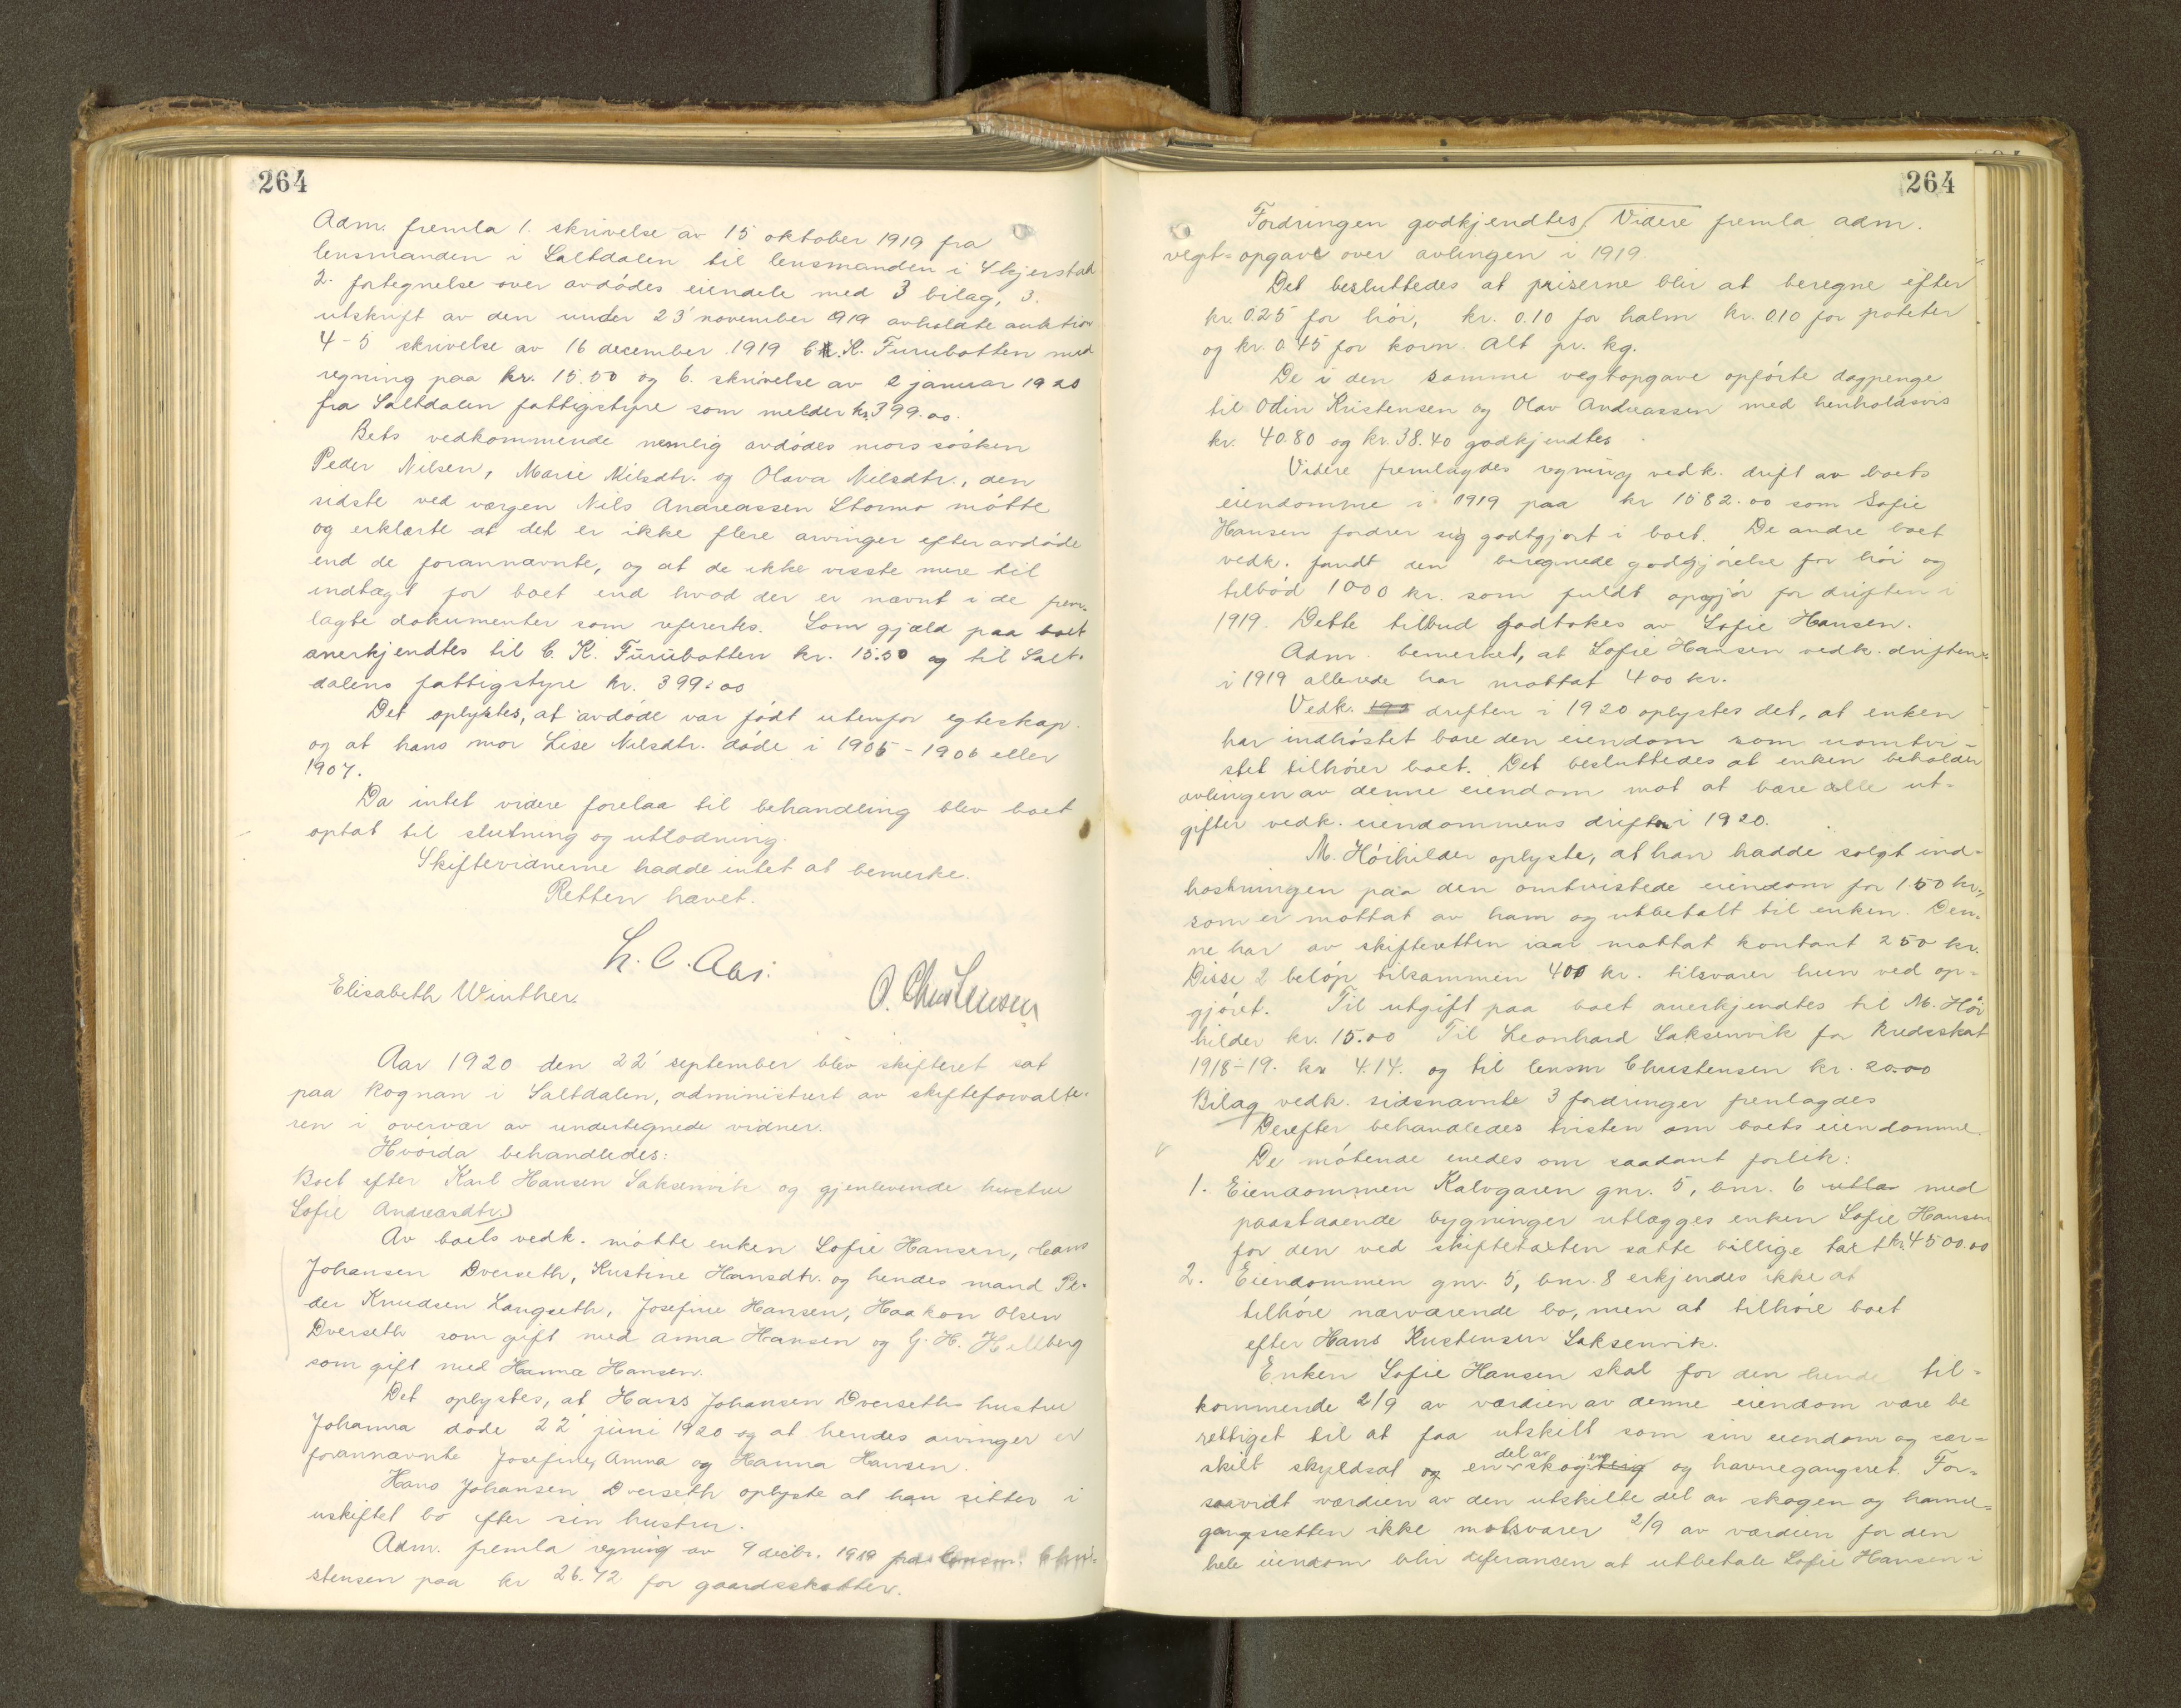 264
Adm. fremla 1. skrivelse av 15 oktober 1919 fra
lensmanden i Saltdalen til lensmanden i Skjerstad
2. fortegnelse over avdødes eiendele med 3 bilag, 3.
utskrift av den under 23' november 1919 avholdte auktion
4-5 skrivelse av 16 december 1919 C. K. Furubotten med
regning paa kr. 15.50 og 6. skrivelse av 2 januar 1920
fra Saltdalen fattigstyre som melder kr. 399.00.
Bets vedkommende nemlig avdødes mors søsken
Peder Nilsen, Marie Nilsdtr. og Olava Nilsdtr., den
sidste ved værgen Nils Andreassen Stormo møtte
og erklærte at det er ikke flere arvinger efter avdøde
end de forannævnte, og at de ikke visste mere til
indtægt for boet end hvad der er nævnt i de frem-
lagte dokumenter som referertes. Som gjæld paa boet
anerkjendtes til C. K. Furubotten kr. 15.50 og til Salt-
dalens fattigstyre kr. 399.00
Det oplystes, at avdøde var født utenfor egteskap.
og at hans mor Lise Nilsdtr. døde i 1905-1906 eller
1907.
Da intet videre forelaa til behandling blev boet
optat til slutning og utlodning.
Skiftevidnerne hadde intet at bemerke.
Retten hævet.
O. Christensen
Elisabeth Winther.
Aar 1920 den 22' september blev skifteret sat
paa Rognan i Saltdalen, administrert av skifteforvalte-
ren i overvær av undertegnede vidner.
Hvorda behandledes:
Boet efter Karl Hansen Saksenvik og gjenlevende hustru
Sofie Andreasdtr.)
Av boets vedk. møtte enken Sofie Hansen, Hans
Johansen Dverseth, Kristine Hansdtr. og hendes mand Pe-
der Knudsen Langseth, Josefine Hansen, Haakon Olsen
Dverseth som gift med Anna Hansen og G. H. Hillberg
som gift med Hanna Hansen.
Det oplystes, at Hans Johansen Dverseths hustru
Johanna døde 22' juni 1920 og at hendes arvinger er
forannævnte Josefine, Anna og Hanna Hansen.
Hans Johansen Dverseth oplyste at han sitter i
uskiftet bo efter sin hustru.
Adm. fremla regning av 9 decbr. 1919 fra lensm. Chri-
stensen paa kr 26.42 for gaardsskatter.
264
Fordringen godkjendtes. Videre fremla adm.
vegt-opgave over avlingen i 1919.
Det besluttedes at priserne blir at beregne efter
kr. 0.25 for høi, kr. 0.10 for halm kr. 0.10 for poteter
og kr. 0.45 for korn. Alt pr. kg.
De i den samme vegtopgave opførte dagpenge
til Odin Kristensen og Olav Andreassen med henholdsvis
kr. 40.80 og kr. 38.40 godkjendtes.
Videre fremlagdes regning vedk. drift av boets
eiendomme i 1919 paa kr 1582.00 som Sofie
Hansen fordrer sig godtgjort i boet. De andre boet
vedk. fandt den beregnede godtgjørelse for høi og
tilbød 1000 kr. som fuldt opgjør for driften i
1919. Dette tilbud godtokes av Sofie Hansen.
Adm. bemerket, at Sofie Hansen vedk. driften
i 1919 allerede har mottat 400 kr.
Vedk. 192 driften i 1920 oplystes det, at enken
har indhøstet bare den eiendom som uomtvi-
stet tilhører boet. Det besluttedes at enken beholder
avlingen av denne eiendom mot at bære alle ut-
gifter vedk. eiendommens driften i 1920.
M. Høihilder oplyste, at han hadde solgt ind-
høstningen paa den omtvistede eiendom for 150 kr.,
som er mottat av ham og utbetalt til enken. Den-
ne har av skifteretten iaar mottat kontant 250 kr.
Disse 2 beløp tilsammen 400 kr. tilsvarer hun ved op-
gjøret. Til utgift paa boet anerkjendtes til M. Høi
hilder kr. 15.00 Til Leonhard Saksenvik for kredsskat
1918-19. kr 4.14. og til lensm Christensen kr. 20.00
Bilag vedk. sidsnævnte 3 fordringer fremlagdes
Derefter behandledes tvisten om boets eiendomme.
De møtende enedes om saadant forlik:
1. Eiendommen Kalvgaren gnr. 5, bnr. 6 utla med
paastaaende bygninger utlægges enken Sofie Hansen
for den ved skiftetakten satte billige takt kr. 4500.00
2. Eiendommen gnr. 5, bnr. 8 erkjendes ikke at
tilhøre nærværende bo, men at tilhøre boet
efter Hans Kristensen Saksenvik.
Enken Sofie Hansen skal for den hende til-
kommende 2/9 av værdien av denne eiendom være be
rettiget til at faa utskilt som sin eiendom og sær-
skilt skyldsat og en del av skogen teig og havnegangsret. For-
saavidt værdien av den utskilte del av skogen og havne-
gangsretten ikke motsvarer 2/9 av værdien for den
hele eiendom blir diferansen at utbetale Sofie Hansen i